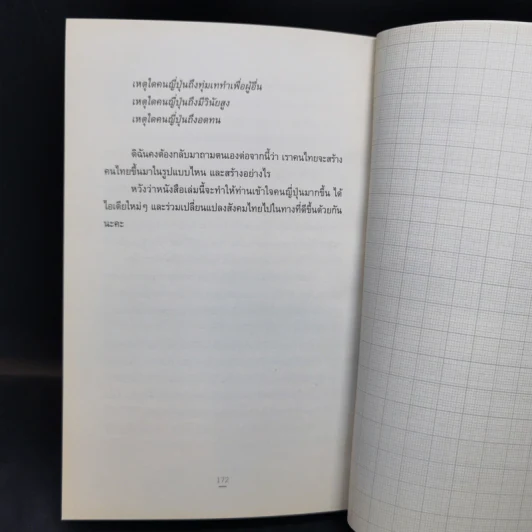 เหตุใดคนญี่ปุ่นถึงทุ่มเททำเพื่อผู้อื่น
เหตุใดคนญี่ปุ่นถึงมีวินัยสูง
เหตุใดคนญี่ปุ่นถึงอดทน
ดิฉันคงต้องกลับมาถามตนเองต่อจากนี้ว่า เราคนไทยจะสร้าง
คนไทยขึ้นมาในรูปแบบไหน และสร้างอย่างไร
หวังว่าหนังสือเล่มนี้จะทำให้ท่านเข้าใจคนญี่ปุ่นมากขึ้น ได้
ไอเดียใหม่ๆ และร่วมเปลี่ยนแปลงสังคมไทยไปในทางที่ดีขึ้นด้วยกัน
นะคะ
172